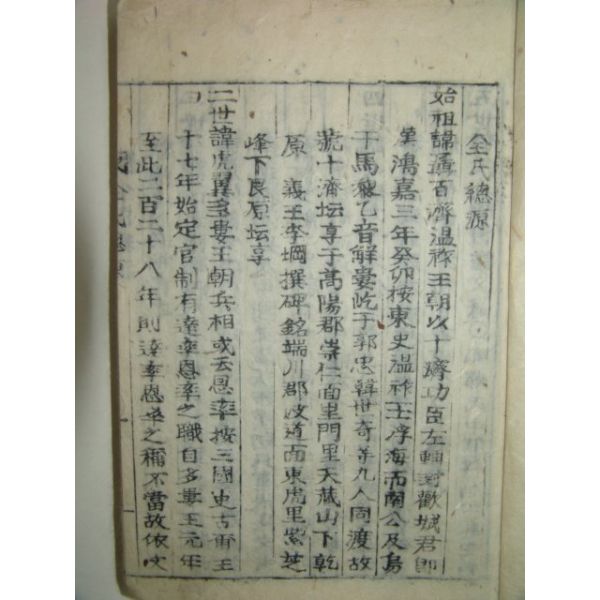 全氏總源
始祖諱聶百濟温祚王朝以十濟功臣左輔封歡城君即
漢鴻嘉三年癸卯按東史温祚王浮海而南公及烏
干馬藜乙音解婁屹于郭忠韓世奇等九人同渡故
號十濟坛享于高陽郡崇仁面里門里天藏山下乾
原 義王李堈撰碑銘端川郡波道面東虎里紫芝
峰下艮原坛享
二世諱虎翼多婁王朝兵相或云恩率按三國史古爾王
十七年始定官制有達率恩率之職自多婁王元年
至此二百二十八年則達率恩率之稱不當故依文